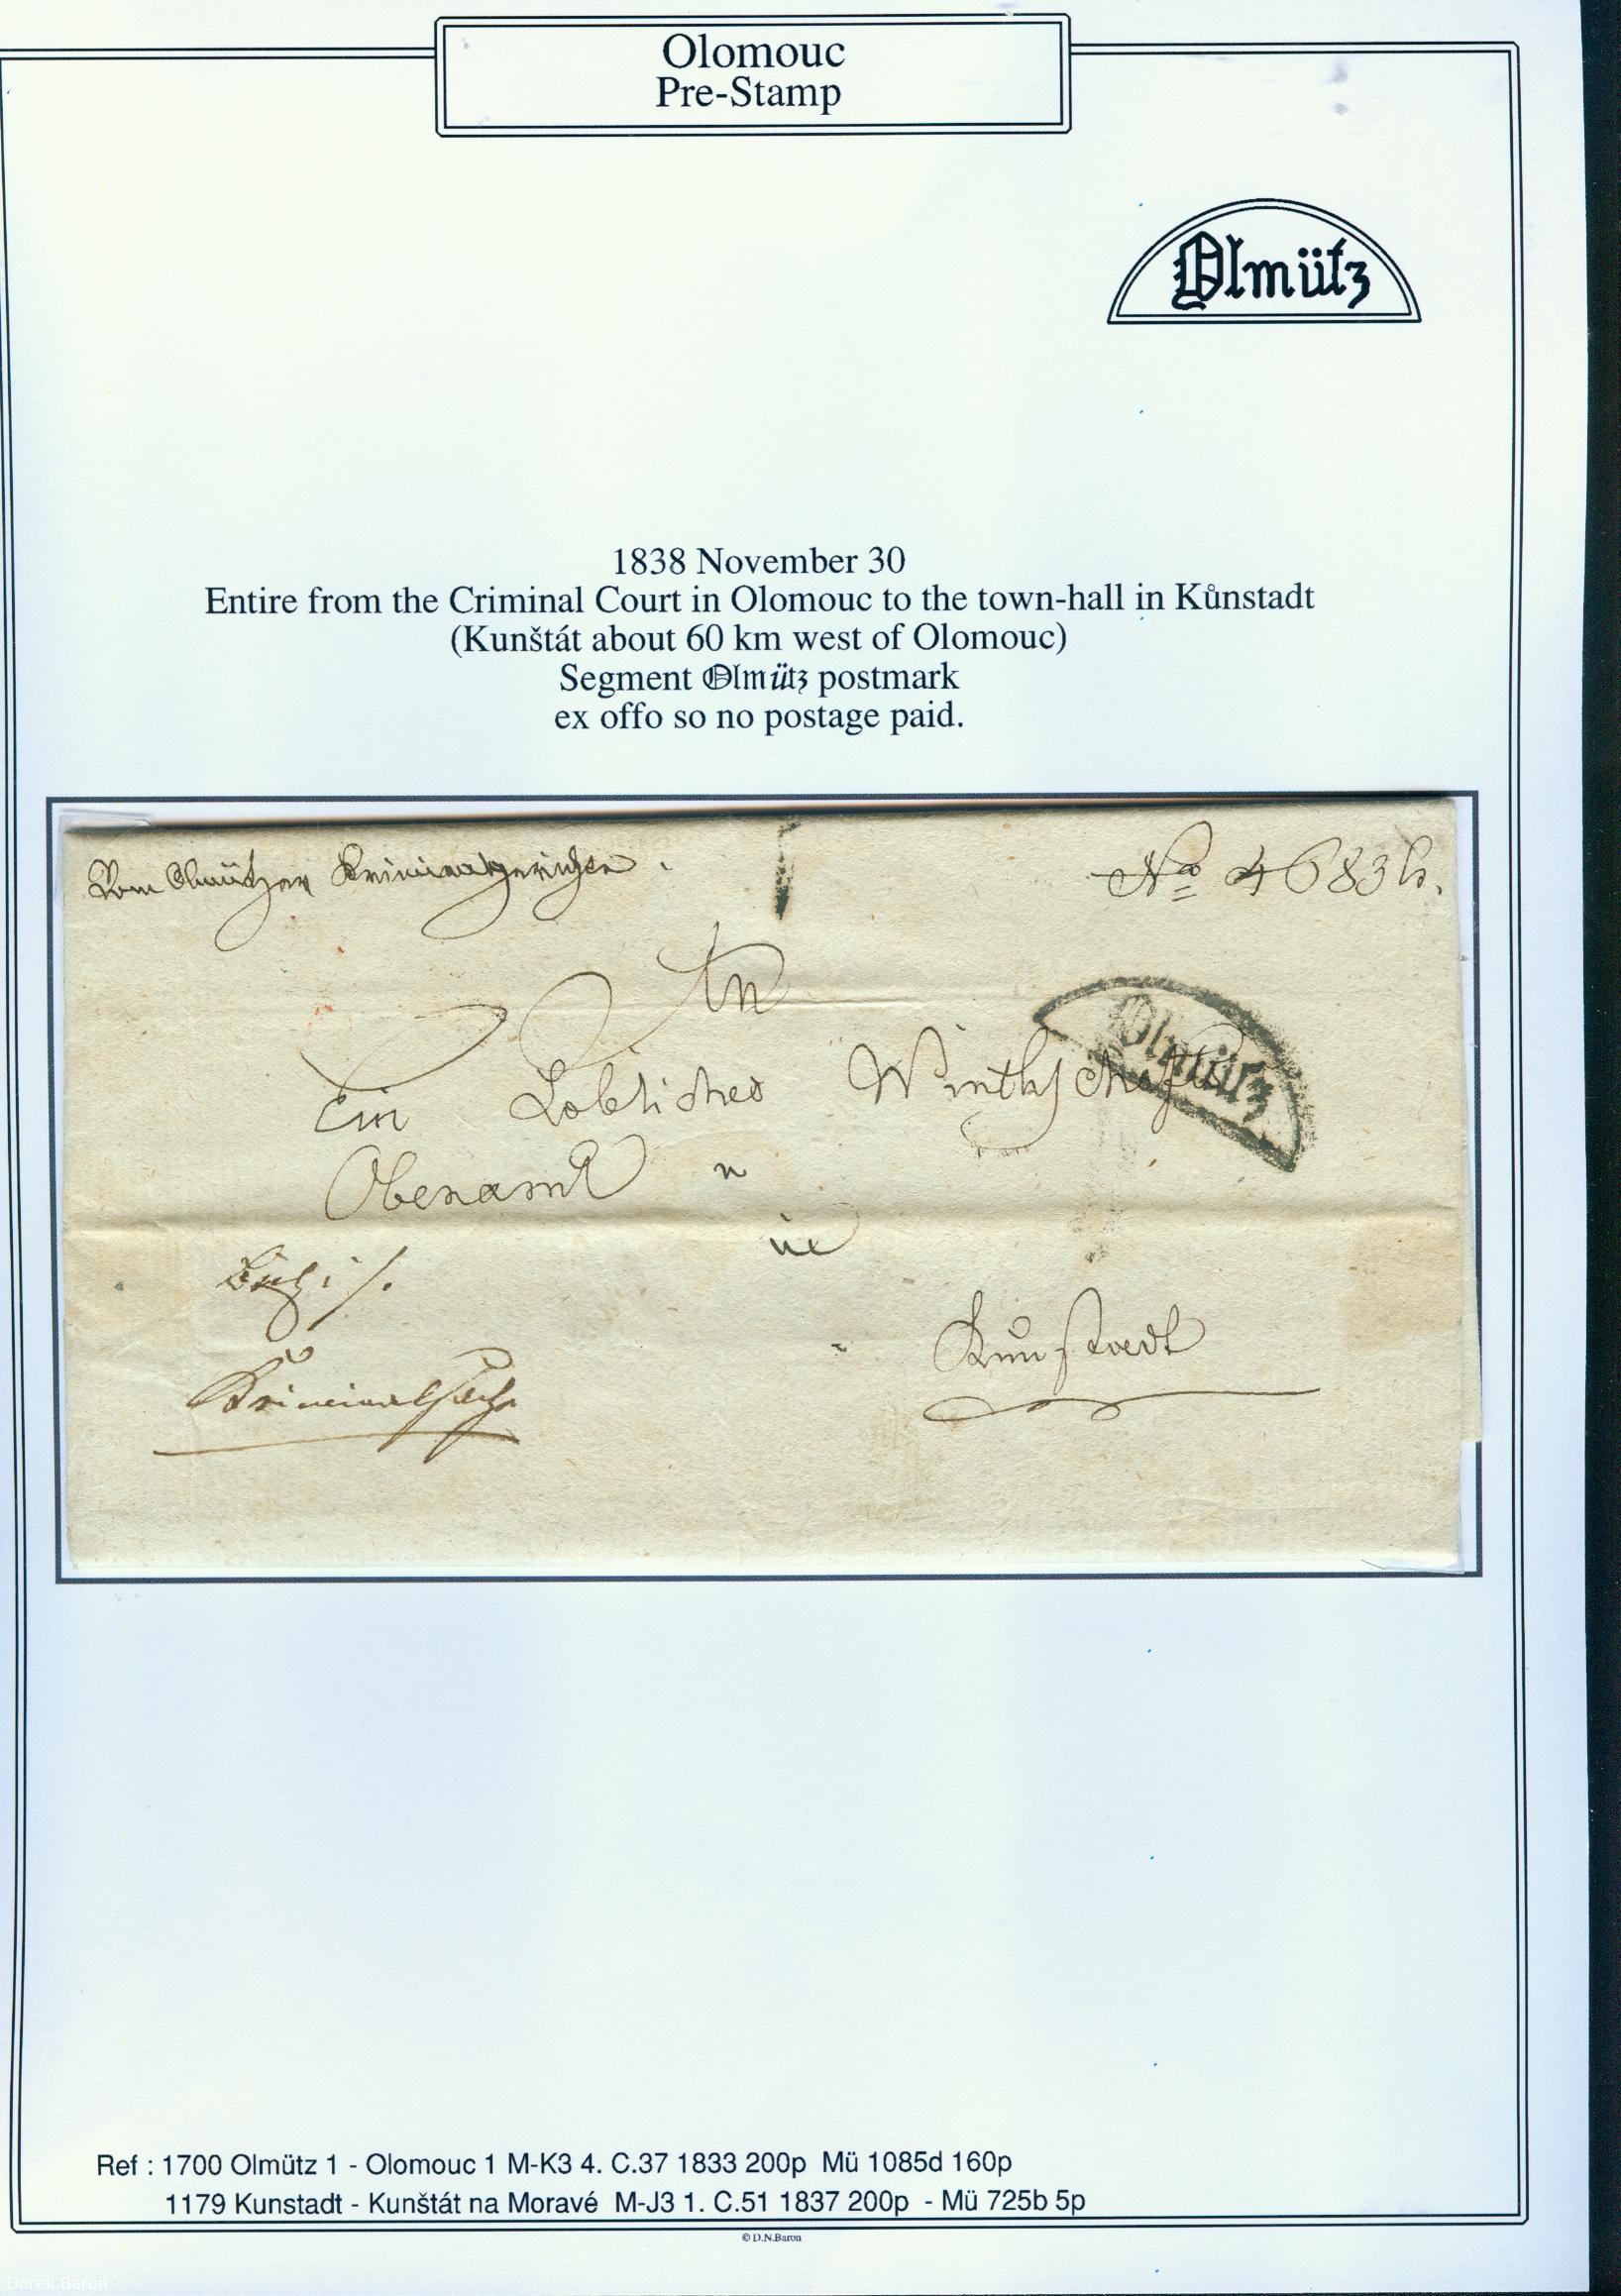 Olomouc
Pre-Stamp
Olmütz
1838 November 30
Entire from the Criminal Court in Olomouc to the town-hall in Ků̈nstadt
(Kunštát about 60 km west of Olomouc)
Segment Olmütz postmark
ex offo so no postage paid.
Vom Olmützer Kriminalgerichte.
No 4683
An
Olmütz
Ein Löbliches Wirthschafts
Oberamt
in
Kunstadt
Kriminalsache
Ref : 1700 Olmütz 1 - Olomouc 1 M-K3 4. C.37 1833 200p Mü 1085d 160p
1179 Kunstadt - Kunštát na Moravé M-J3 1. C.51 1837 200p - Mü 725b 5p
© D.N.Baron
Derek Baron